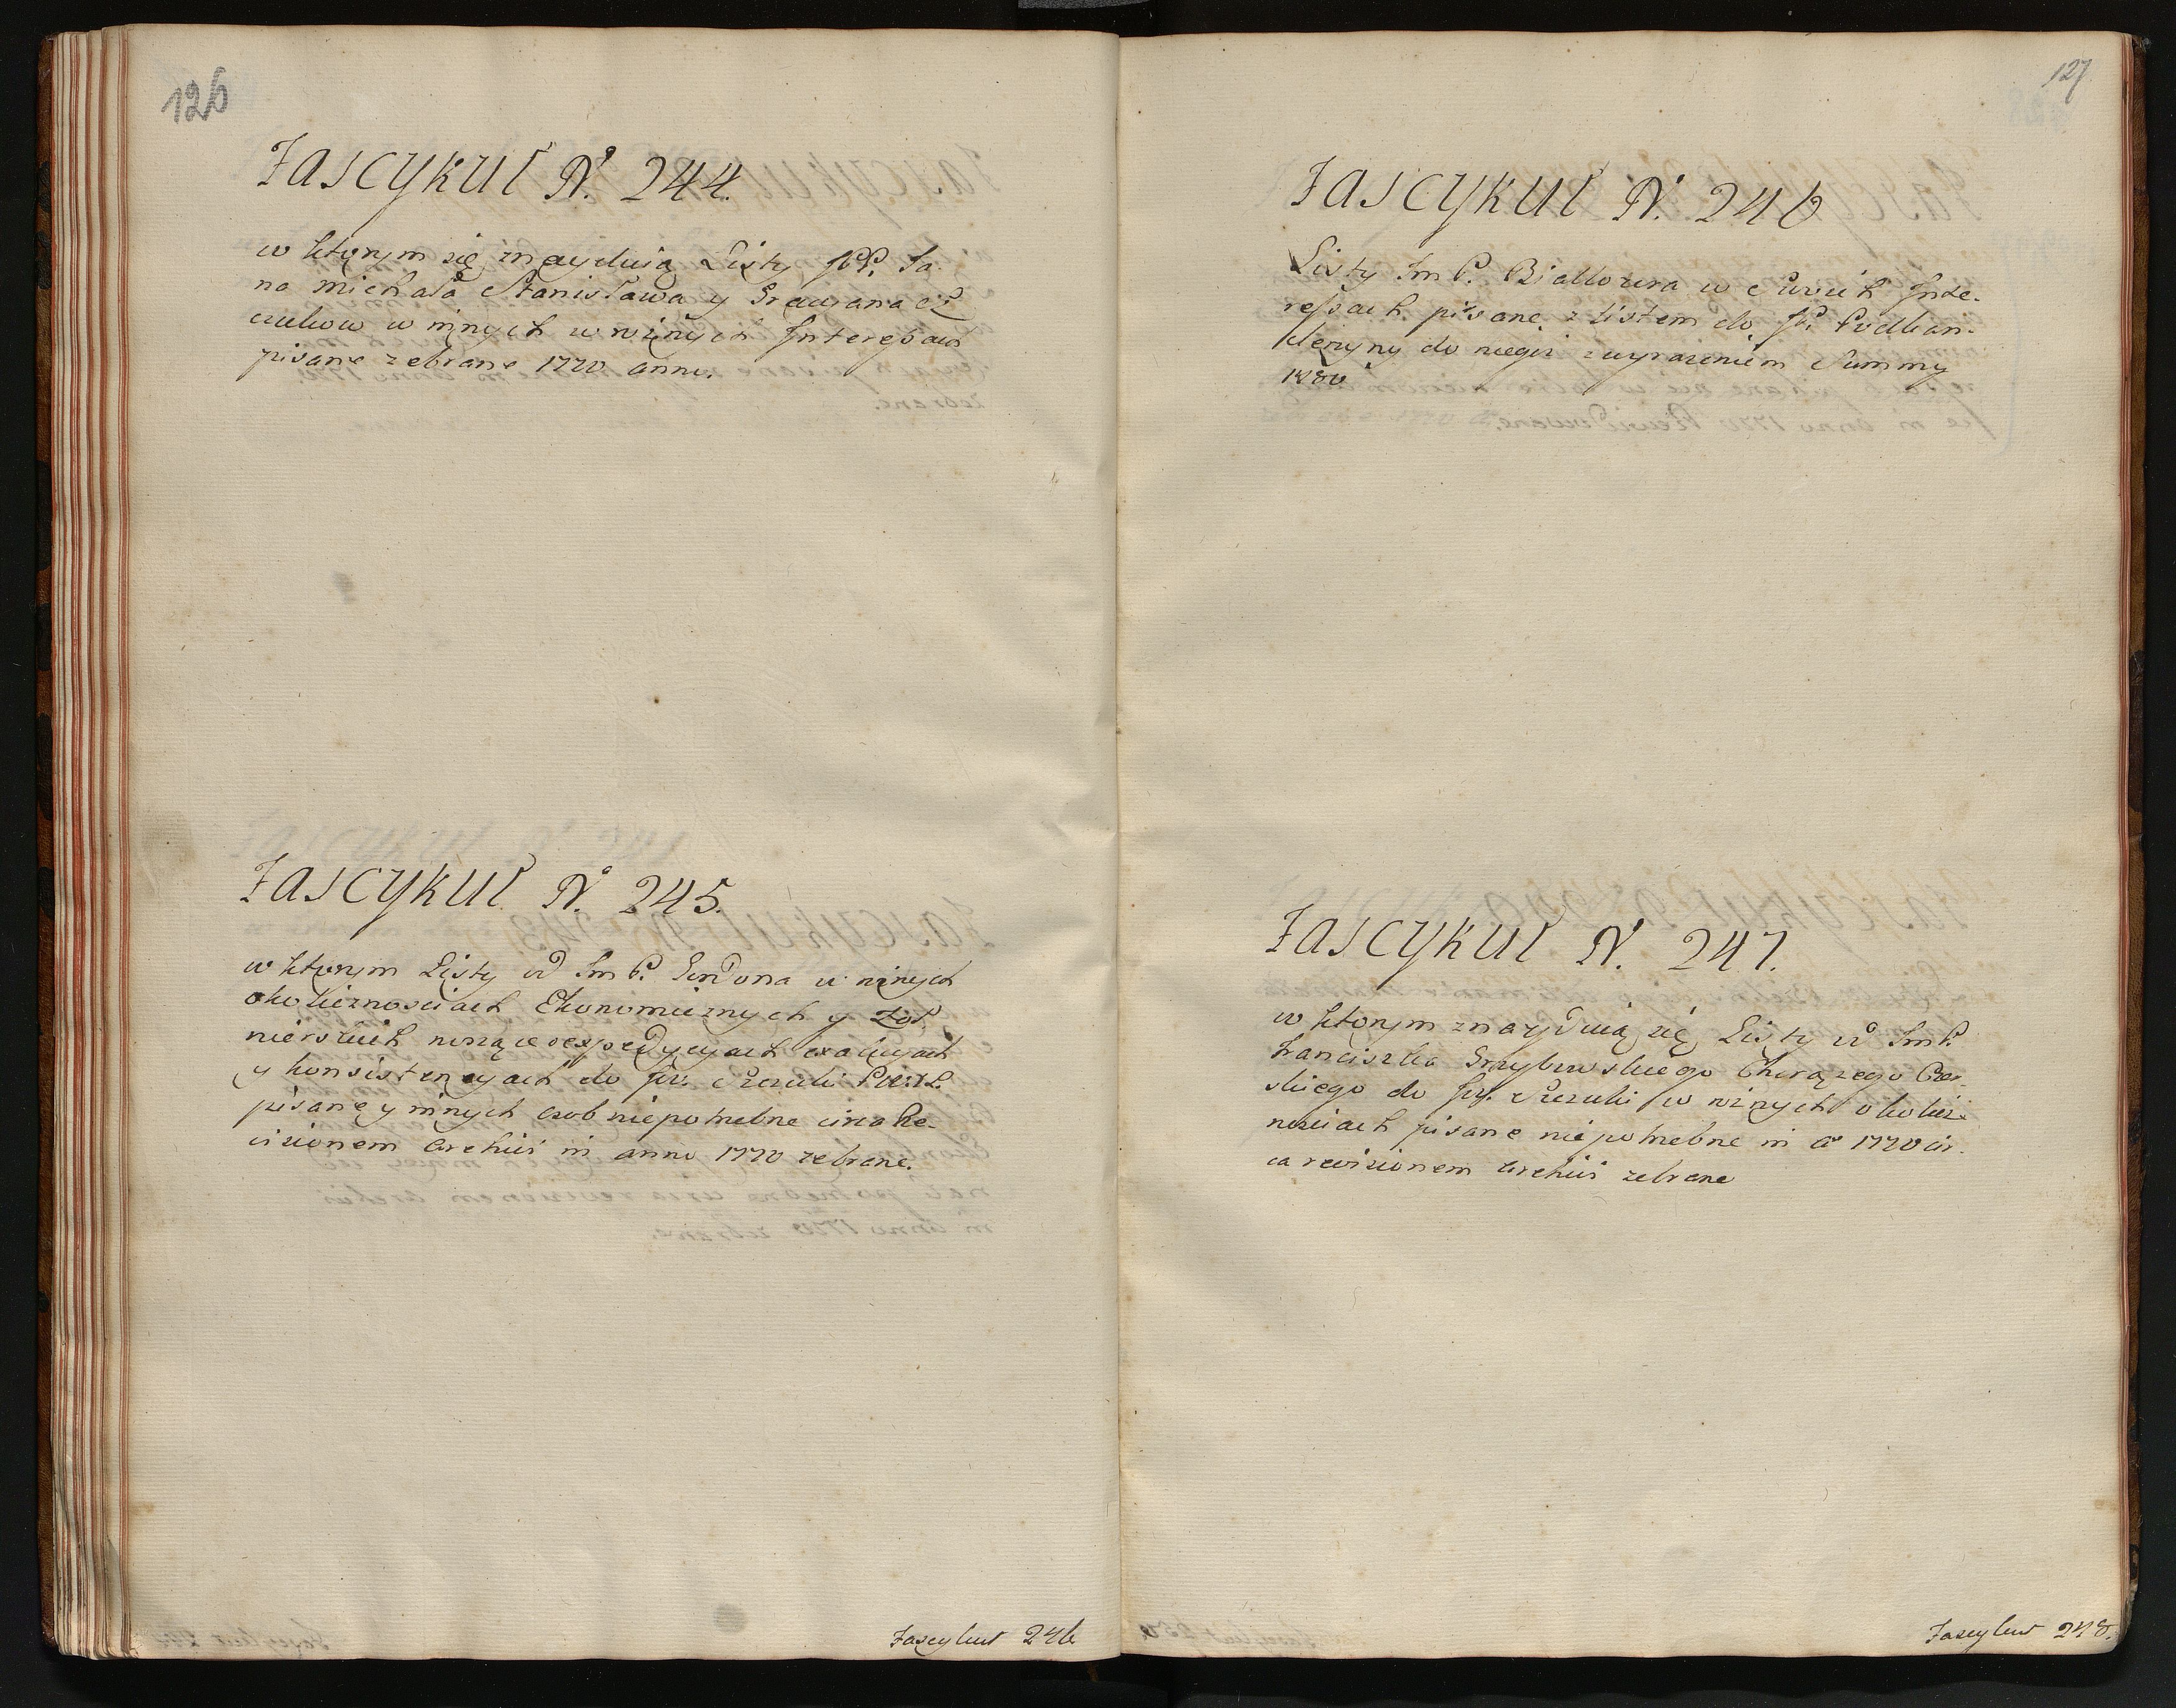 126
Fascykuł N. 244.
w ktorym się znayduią Listy JPP. Ja-
na Michała Stanisława y
w innych w rożnych Interessach
pisane zebrane 1770 anno.
Fascykuł N. 245.
w ktorym Listy od Im P. Gordona w rożnych
okolicznosciach Ekonomicznych y Zoł
nierskich expedycyach exakcyach
y konsistencyach do JW.
pisane y innych osob niepotrzebne circa Re-
visionem Archivi in anno 1770 zebrane.
Fascykuł 246
127
Fascykuł N. 246
Listy Im P. Białłozora w Swoich Inte-
ressach pisane z Listem do JP. Podkan-
clerzyny do niegoż z wyrażeniem Summy
Fascykuł N. 247.
w ktorym znayduią się Listy od Im P.
Franciszka Grzybowskiego Chorążego
skiego do JW. w rożnych okolicz-
nosciach pisane niepotrzebne in Aº 1770 cir-
ca revisionem Archivi zebrane
Fascykuł 248.